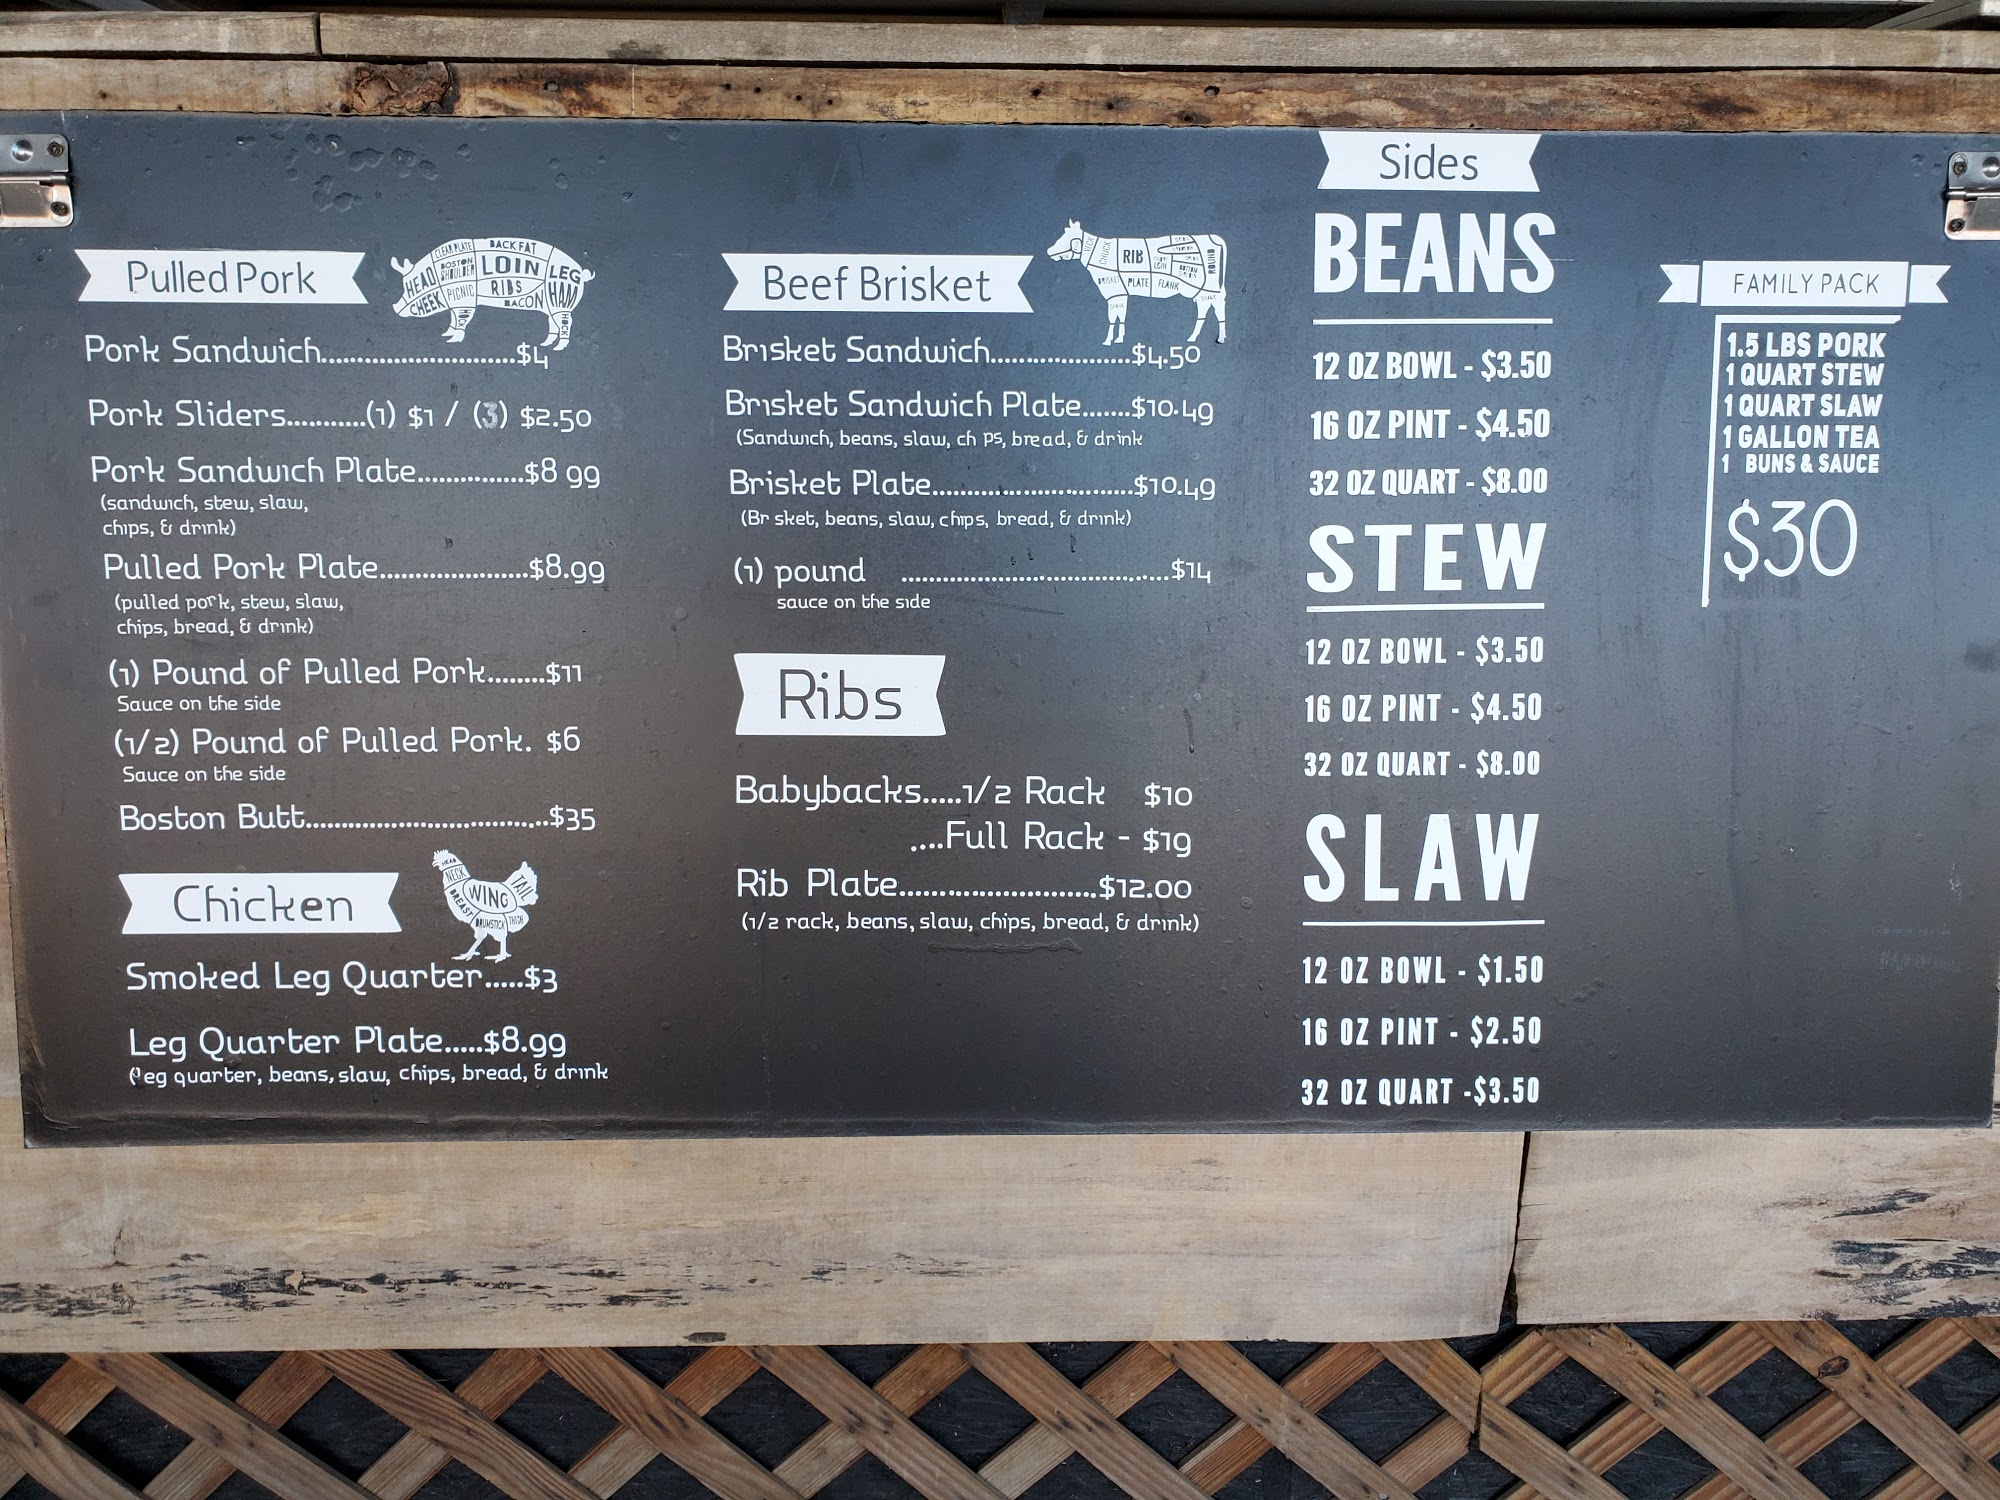 Pulled Pork
CLEAR PLATE
BACK FAT
HEAD
BOSTON SHOULDER
LOIN
LEG
CHEEK
PICNIC
RIBS
BACON
HAM
HOCK
HOCK
Pork Sandwich..........................$4
Pork Sliders...........(1) $1 / (3) $2.50
Pork Sandwich Plate...............$8 99
(sandwich, stew, slaw,
chips, & drink)
Pulled Pork Plate.....................$8.99
(pulled pork, stew, slaw,
chips, bread, & drink)
(1) Pound of Pulled Pork........$11
Sauce on the side
(1/2) Pound of Pulled Pork. $6
Sauce on the side
Boston Butt..................................$35
Chicken
HEAD
NECK
WING
TAIL
BREAST
DRUMSTICK
THIGH
Smoked Leg Quarter.....$3
Leg Quarter Plate.....$8.99
(leg quarter, beans, slaw, chips, bread, & drink
Beef Brisket
CHUCK
RIB
ROUND
BRISKET
PLATE
FLANK
SHANK
Brisket Sandwich....................$4.50
Brisket Sandwich Plate.......$10.49
(Sandwich, beans, slaw, ch ps, bread, & drink
Brisket Plate.............................$10.49
(Br sket, beans, slaw, chips, bread, & drink)
(1) pound ......................................$14
sauce on the side
Ribs
Babybacks.....1/2 Rack $10
....Full Rack - $19
Rib Plate............................$12.00
(1/2 rack, beans, slaw, chips, bread, & drink)
Sides
BEANS
12 OZ BOWL - $3.50
16 OZ PINT - $4.50
32 OZ QUART - $8.00
STEW
12 OZ BOWL - $3.50
16 OZ PINT - $4.50
32 OZ QUART - $8.00
SLAW
12 OZ BOWL - $1.50
16 OZ PINT - $2.50
32 OZ QUART -$3.50
FAMILY PACK
1.5 LBS PORK
1 QUART STEW
1 QUART SLAW
1 GALLON TEA
1 BUNS & SAUCE
$30